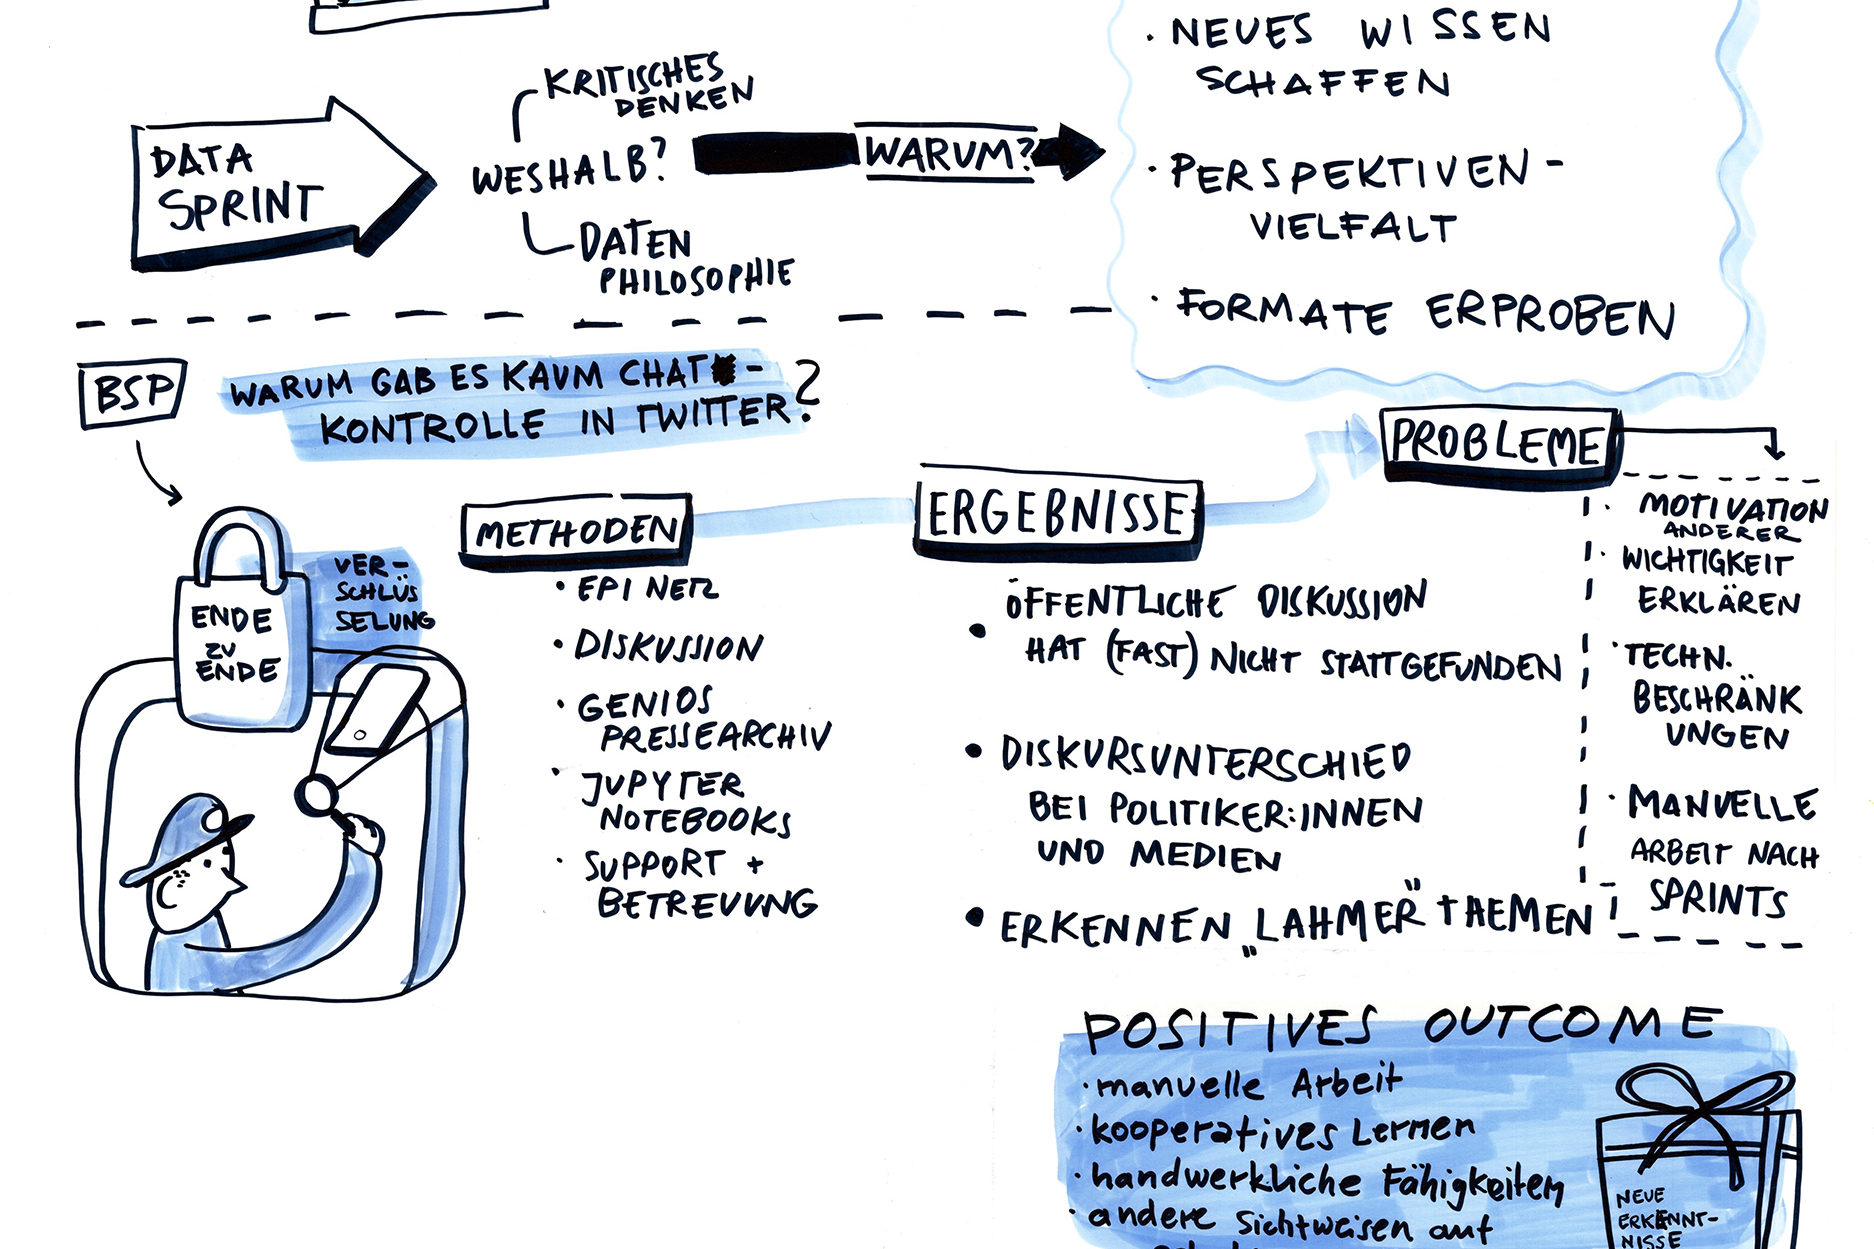 DATA
SPRINT
KRITISCHES
DENKEN
WESHALB?
DATEN
PHILOSOPHIE
WARUM?
· NEUES WISSEN
SCHAFFEN
· PERSPEKTIVEN-
VIELFALT
· FORMATE ERPROBEN
BSP
WARUM GAB ES KAUM CHAT-
KONTROLLE IN TWITTER?
VER-
SCHLÜS
SELUNG
ENDE
ZU
ENDE
METHODEN
· EPINETZ
· DISKUSSION
· GENIOS
PRESSEARCHIV
· JUPYTER
NOTEBOOKS
· SUPPORT +
BETREUUNG
ERGEBNISSE
• ÖFFENTLICHE DISKUSSION
HAT (FAST) NICHT STATTGEFUNDEN
• DISKURSUNTERSCHIED
BEI POLITIKER:INNEN
UND MEDIEN
• ERKENNEN „LAHMER" THEMEN
PROBLEME
· MOTIVATION
ANDERER
· WICHTIGKEIT
ERKLÄREN
· TECHN.
BESCHRÄNK
UNGEN
· MANUELLE
ARBEIT NACH
SPRINTS
POSITIVES OUTCOME
· manuelle Arbeit
· kooperatives Lernen
· handwerkliche Fähigkeiten
· andere Sichtweisen auf
NEUE
ERKENNT-
NISSE